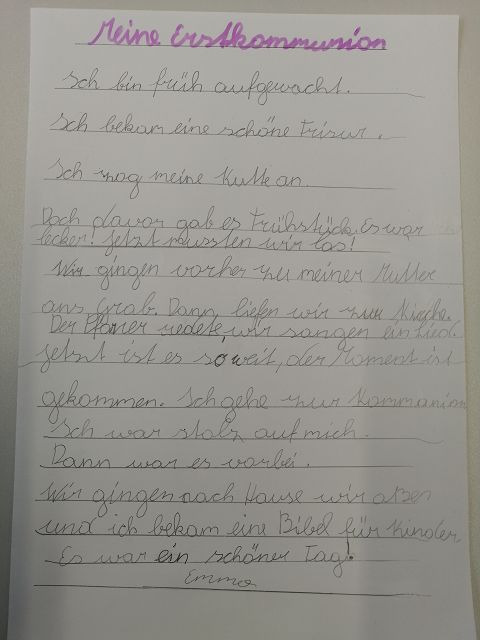 Meine Erstkommunion
Ich bin früh aufgewacht.
Ich bekam eine schöne Frisur.
Ich zog meine Kutte an.
Doch davor gab es Frühstück. Es war
lecker! Jetzt mussten wir los!
Wir gingen vorher zu meiner Mutter
ans Grab. Dann liefen wir zur Kirche.
Der Pfarrer redete, wir sangen ein Lied.
Jetzt ist es soweit, der Moment ist
gekommen. Ich gehe zur Kommunion
Ich war stolz auf mich.
Dann war es vorbei.
Wir gingen nach Hause wir aßen
und ich bekam eine Bibel für Kinder
Es war ein schöner Tag!
Emma